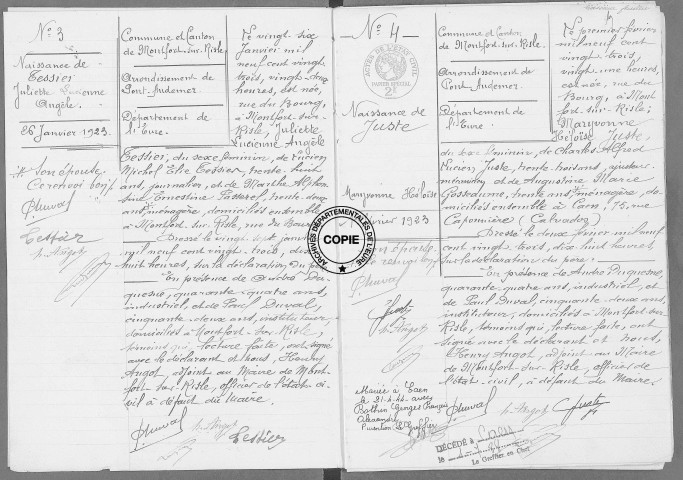 N° 3
Naissance de
Tessier
Juliette Lucienne
Angèle
26 Janvier 1923
Son épouse
Duval
Tessier
h. Angot
Commune et Canton
de Montfort-sur-Risle
Arrondissement de
Pont-Audemer
Département de
l'Eure
Le vingt six
Janvier mil
neuf cent vingt
trois, vingt deux
heures, est née,
rue du Bourg,
à Montfort-sur-
Risle, Juliette
Lucienne Angèle
Tessier, du sexe féminin, de Lucien
Michel Elie Tessier, trente huit
ans, journalier, et de Marthe Alphon-
sine Ernestine Passerel, trente deux
ans, ménagère, domiciliés ensemble
à Montfort-sur-Risle, rue du Bourg.
Dressé le vingt sept janvier
mil neuf cent vingt trois, dix
huit heures, sur la déclaration du père
En présence de André Du-
quesne, quarante quatre ans,
industriel, et de Paul Duval,
cinquante deux ans, instituteur,
domiciliés à Montfort-sur-Risle,
témoins qui, lecture faite, ont signé
avec le déclarant et Nous, Henry
Angot, adjoint au Maire de Mont-
fort-sur-Risle, officier de l'état ci-
vil à défaut du Maire.
Duval
h. Angot
Tessier
N° 4
ACTES DE L'ETAT CIVIL
PAPIER SPECIAL
21
Naissance de
Juste
Maryvonne Héloïse
1923
Duval
Juste
h. Angot
Marié à Caen
le 21.4.44 avec
Georges François
Alexandre
Commune et Canton
de Montfort-sur-Risle
Arrondissement de
Pont-Audemer
Département de
l'Eure
Le premier février
mil neuf cent
vingt trois
vingt une heures,
est née, rue du
Bourg, à Mont-
fort-sur-Risle,
Maryvonne
Héloïse Juste,
du sexe féminin, de Charles Alfred
Lucien Juste, trente trois ans, ajusteur
mécanicien, et de Augustine Marie
trente ans, ménagère, do-
miciliés ensemble à Caen, 75, rue
Caponnière (Calvados)
Dressé le deux février mil neuf
cent vingt trois, dix huit heures
sur la déclaration du père.
En présence de André Duquesne,
quarante quatre ans, industriel, et
de Paul Duval, cinquante deux ans,
instituteur, domiciliés à Montfort-sur-
Risle, témoins qui, lecture faite, ont
signé avec le déclarant et Nous,
Henry Angot, adjoint au Maire
de Montfort-sur-Risle, officier de
l'état civil, à défaut du Maire.
Duval
h. Angot
Juste
DÉCÉDÉ à Caen
le
Le Greffier en Chef
ARCHIVES DÉPARTEMENTALES DE L'EURE
COPIE